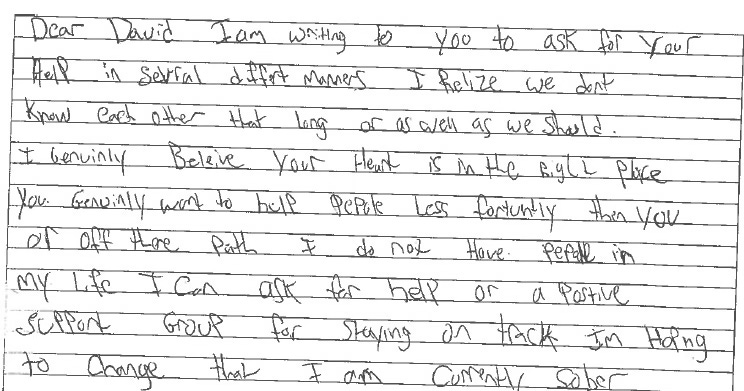 Dear David I am writing to you to ask for your
Help in sevrial diffrt manners I Relize we dont
Know each other that long or as well as we should.
I Genuinly Beleive your Heart is in the Right place
You Genuinly want to help Pepole Less fortuntly then you
or off there Path I do not Have Pepole in
my Life I Can ask for help or a Postive
Support Group for staying on track Im Hoping
to Change that I am Currently Sober